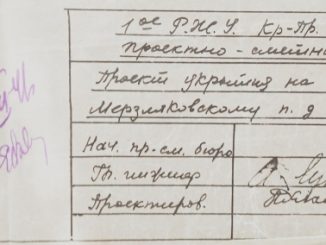 1ое Р.Ж.У. Кр-Пр.
проектно-сметн
Проект укрытия на
Мерзляковскому п. д
Нач. пр.см. бюро
Гл. инженер
Проектиров.